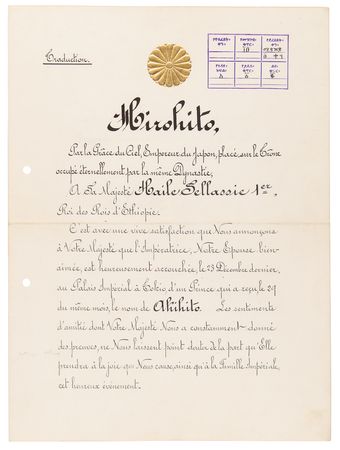 Traduction.
Hirohito,
Par la Grâce du Ciel, Empereur du Japon, placé sur le Trône
occupé éternellement par la même Dynastie,
À Sa Majesté Haile Sellassie 1er,
Roi des Rois d'Ethiopie.
C'est avec une vive satisfaction que Nous annonçons
à Votre Majesté que l'Impératrice, Notre Epouse bien-
aimée, est heureusement accouchée, le 23 Décembre dernier,
au Palais Impérial à Tokio d'un Prince qui a reçu le 29
du même mois, le nom de Akihito. Les sentiments
d'amitié dont Votre Majesté Nous a constamment donné
des preuves, ne Nous laissent point douter de la part qu'Elle
prendra à la joie que Nous cause, ainsi qu'à la Famille Impériale,
cet heureux événement.